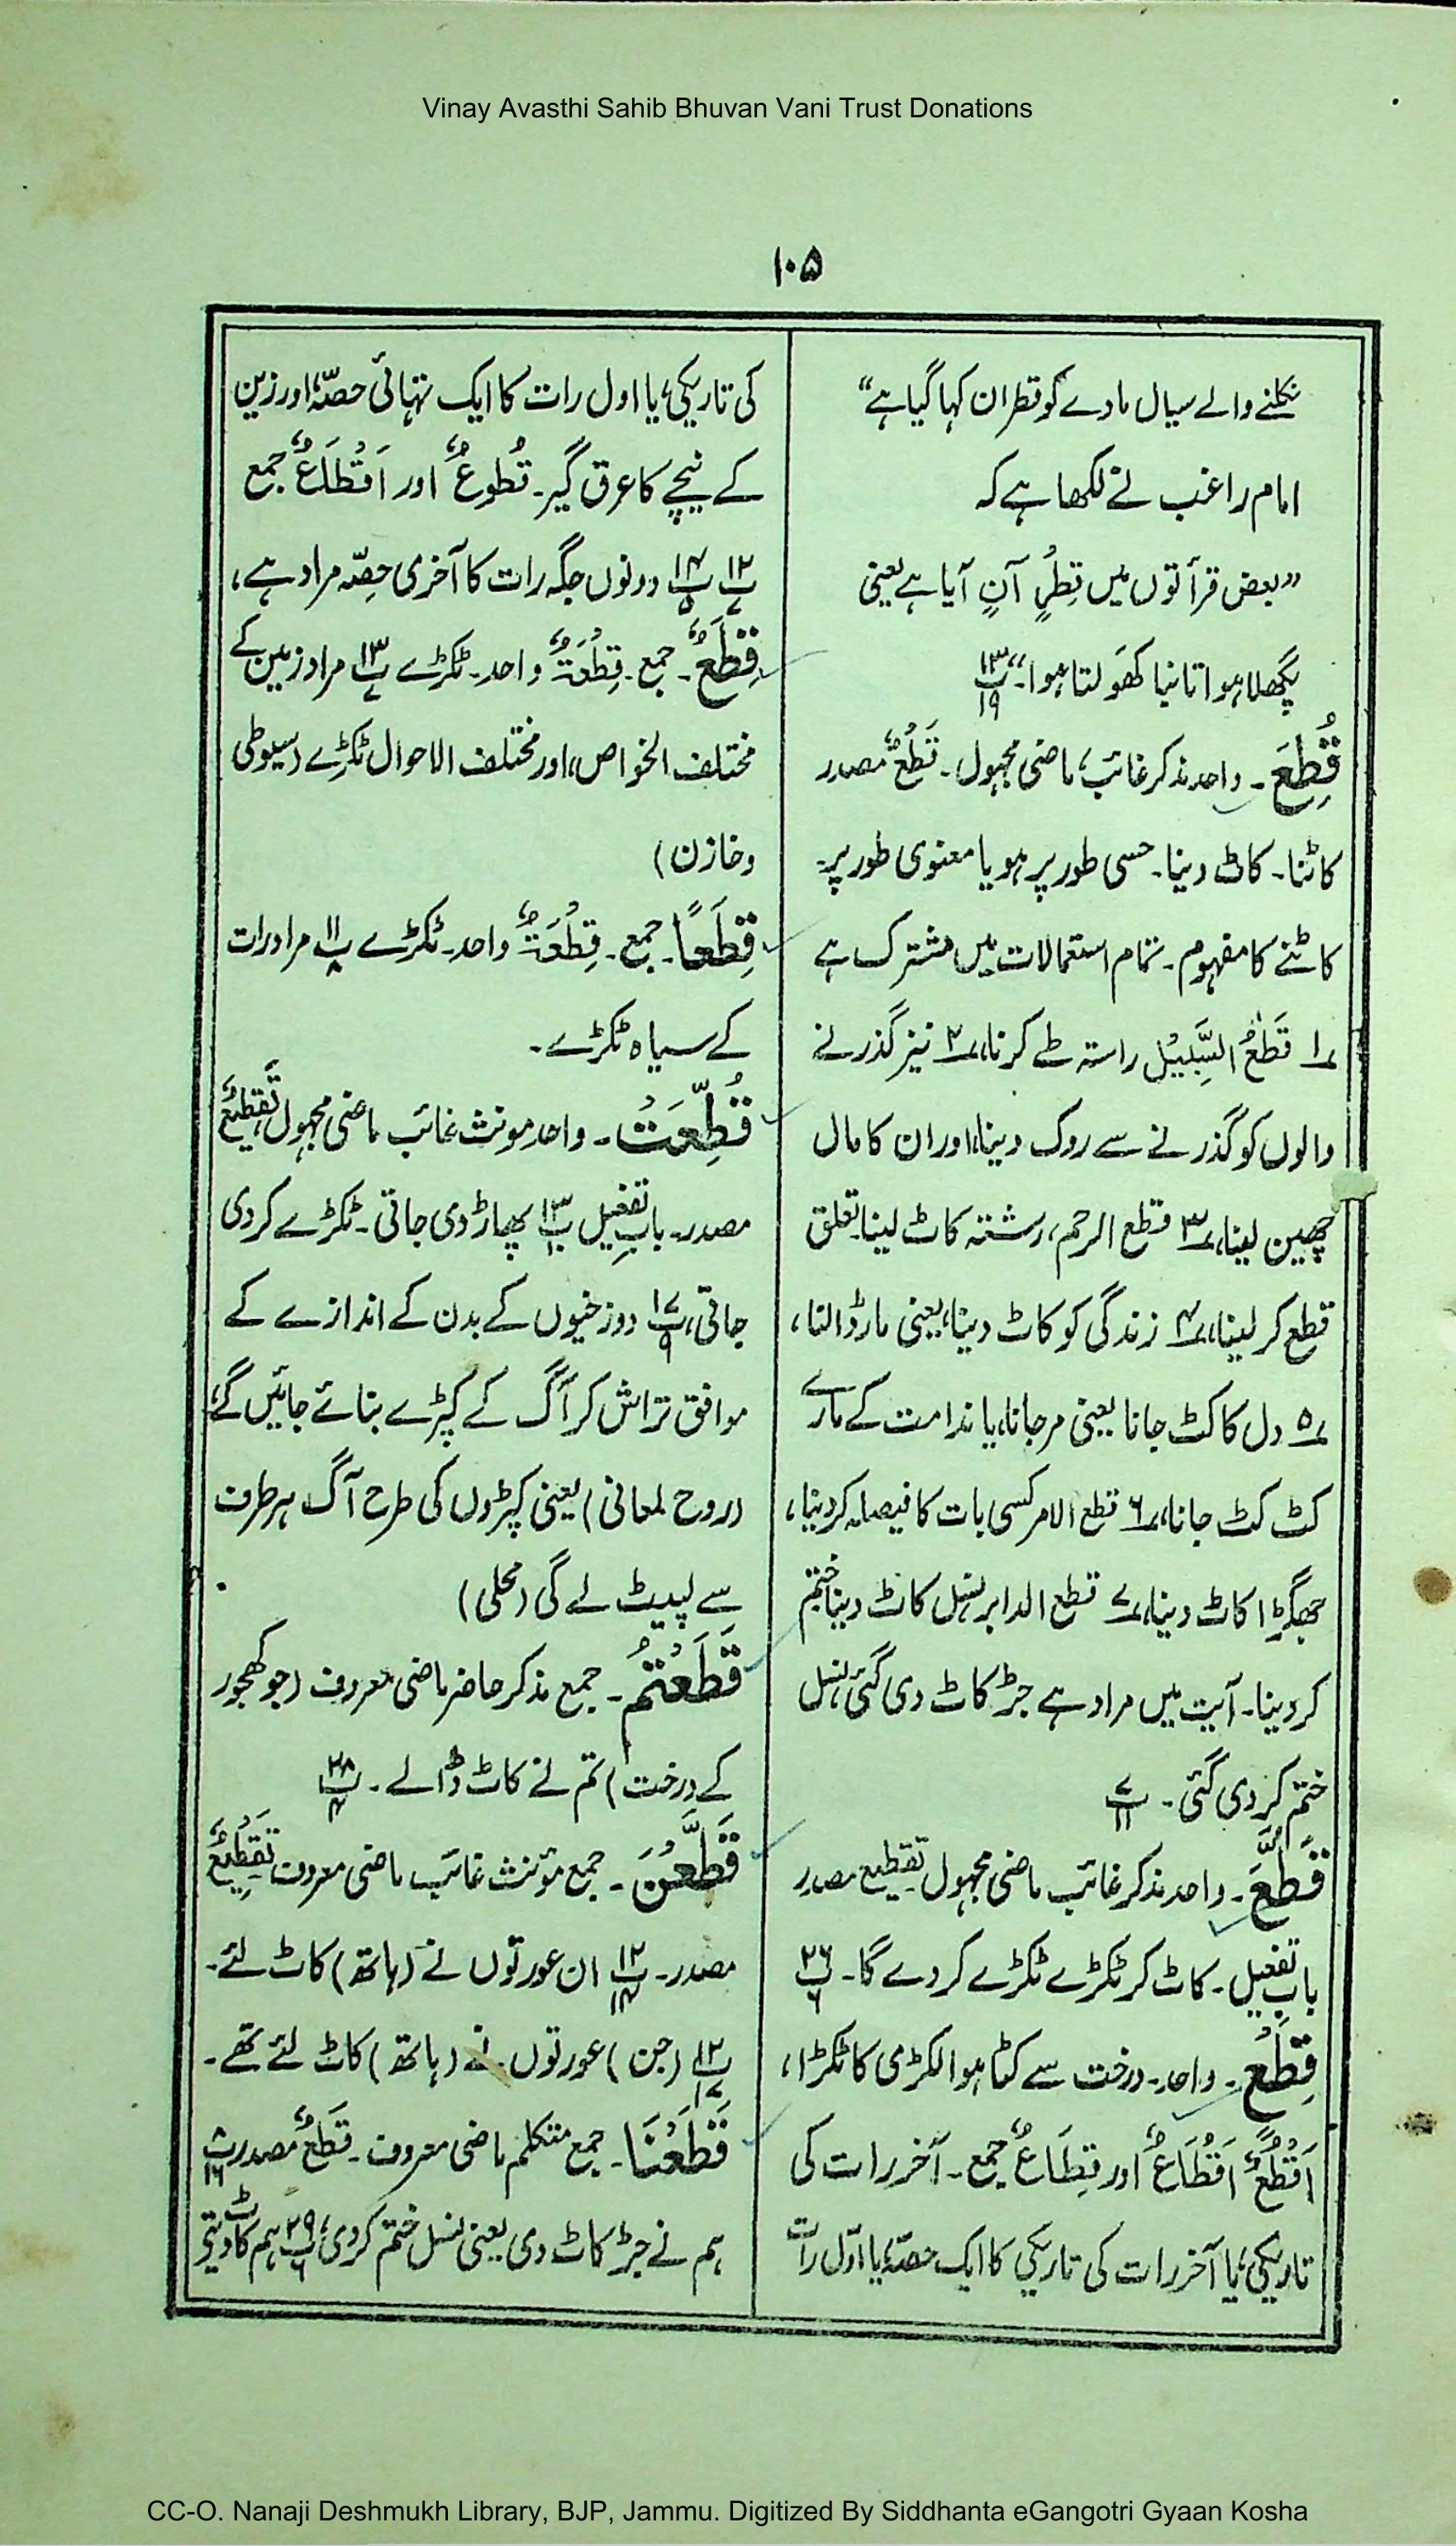 Vinay Avasthi Sahib Bhuvan Vani Trust Donations
۱۰۵
نکلنے والے سیال مادے کو قطران کہا گیا ہے“
امام راغب نے لکھا ہے کہ
”بعض قرأتوں میں قِطْرٍ آنٍ آیا ہے یعنی
پگھلا ہوا تانبا کھَولتا ہوا۔“ پ۱۳/۱۹
قُطِعَ۔ واحد مذکر غائب، ماضی مجہول۔ قَطْعٌ مصدر
کاٹنا۔ کاٹ دینا۔ حسی طور پر ہو یا معنوی طور پر۔
کاٹنے کا مفہوم۔ تمام استعمالات میں مشترک ہے
۱؎ قَطْعُ السَّبِیْل راستہ طے کرنا، ۲؎ نیز گذرنے
والوں کو گذرنے سے روک دینا، اور ان کا مال
چھین لینا، ۳؎ قطع الرحم، رشتہ کاٹ لینا تعلق
قطع کر لینا، ۴؎ زندگی کو کاٹ دینا، یعنی مار ڈالنا،
۵؎ دل کا کٹ جانا یعنی مر جانا، یا ندامت کے مارے
کٹ کٹ جانا، ۶؎ قطع الامر کسی بات کا فیصلہ کر دینا،
جھگڑا کاٹ دینا، ۷؎ قطع الدابر نسل کاٹ دینا ختم
کر دینا۔ آیت میں مراد ہے جڑ کاٹ دی گئی، نسل
ختم کر دی گئی۔ پ۷/۱۱
قُطِّعَ۔ واحد مذکر غائب ماضی مجہول تقطیع مصدر
بابِ تفعیل۔ کاٹ کر ٹکڑے ٹکڑے کر دے گا۔ پ۲۶/۶
قِطْعٍ۔ واحد۔ درخت سے کٹا ہوا لکڑی کا ٹکڑا،
اَقْطُعٌ اَقْطَاعٌ اور قِطَاعٌ جمع۔ آخر رات کی
تاریکی، یا آخر رات کی تاریکی کا ایک حصہ، یا اوّل رات
کی تاریکی، یا اول رات کا ایک تہائی حصّہ، اور زین
کے نیچے کا عرق گیر۔ قُطوعٌ اور اَقْطَاعٌ جمع
پ۱۲/۷ پ۱۴/۵ دونوں جگہ رات کا آخری حصّہ مراد ہے،
قِطَعٌ۔ جمع۔ قِطْعَۃٌ واحد۔ ٹکڑے پ۱۳/۷ مراد زمین کے
مختلف الخواص، اور مختلف الاحوال ٹکڑے (سیوطی
وخازن)
قِطَعًا۔ جمع۔ قِطْعَۃٌ واحد۔ ٹکڑے پ۱۱/۸ مراد رات
کے سیاہ ٹکڑے۔
قُطِّعَتْ۔ واحد مونث غائب ماضی مجہول، تَقْطِیْعٌ
مصدر۔ بابِ تفعیل پ۱۳/۱۰ پھاڑ دی جاتی۔ ٹکڑے کر دی
جاتی، پ۱۷/۹ دوزخیوں کے بدن کے اندازے کے
موافق تراش کر آگ کے کپڑے بنائے جائیں گے،
(روح لمعانی) یعنی کپڑوں کی طرح آگ ہر طرف
سے لپیٹ لے گی (محلی)
قَطَعْتُمْ۔ جمع مذکر حاضر ماضی معروف (جو کھجور
کے درخت) تم نے کاٹ ڈالے۔ پ۲۸/۴
قَطَّعْنَ۔ جمع مؤنث غائب ماضی معروف تَقْطِیْعٌ
مصدر۔ پ۱۲/۱۴ ان عورتوں نے (ہاتھ) کاٹ لئے۔
پ۱۲/۱۷ (جن) عورتوں نے (ہاتھ) کاٹ لئے تھے۔
قَطَعْنَا۔ جمع متکلم ماضی معروف۔ قَطْعٌ مصدر پ۸/۱۶
ہم نے جڑ کاٹ دی یعنی نسل ختم کر دی، پ۲۹/۶ ہم کاٹ دیتے
CC-O. Nanaji Deshmukh Library, BJP, Jammu. Digitized By Siddhanta eGangotri Gyaan Kosha